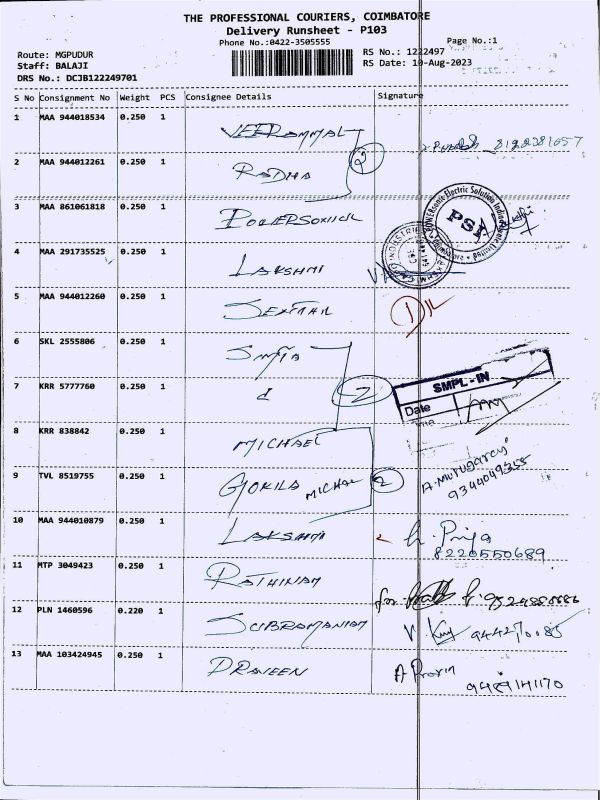 THE PROFESSIONAL COURIERS, COIMBATORE
Delivery Runsheet - P103
Phone No.:0422-3505555
Page No.:1
Route: MGPUDUR
RS No.: 1222497
Staff: BALAJI
RS Date: 10-Aug-2023
DRS No.: DCJB122249701
S No Consignment No Weight PCS Consignee Details Signature
1 MAA 944018534 0.250 1 VEERAMMAL
2 MAA 944012261 0.250 1 RADHA 2
3 MAA 861061818 0.250 1 POWERSONIC PSI
4 MAA 291735525 0.250 1 LAKSHMI
5 MAA 944012260 0.250 1 SENTHIL
6 SKL 2555806 0.250 1
7 KRR 5777760 0.250 1 2 SMPL-IN
Date
8 KRR 838842 0.250 1 MICHAEL
9 TVL 8519755 0.250 1 GOKILA MICHAL 2 A. Murugaraj
9344049355
10 MAA 944010879 0.250 1 LAKSHMI Priya
8220550689
11 MTP 3049423 0.250 1 RATHINAM for
12 PLN 1460596 0.220 1 SUBRAMANIAM
13 MAA 103424945 0.250 1 PRAVEEN A Pravin
9489141170